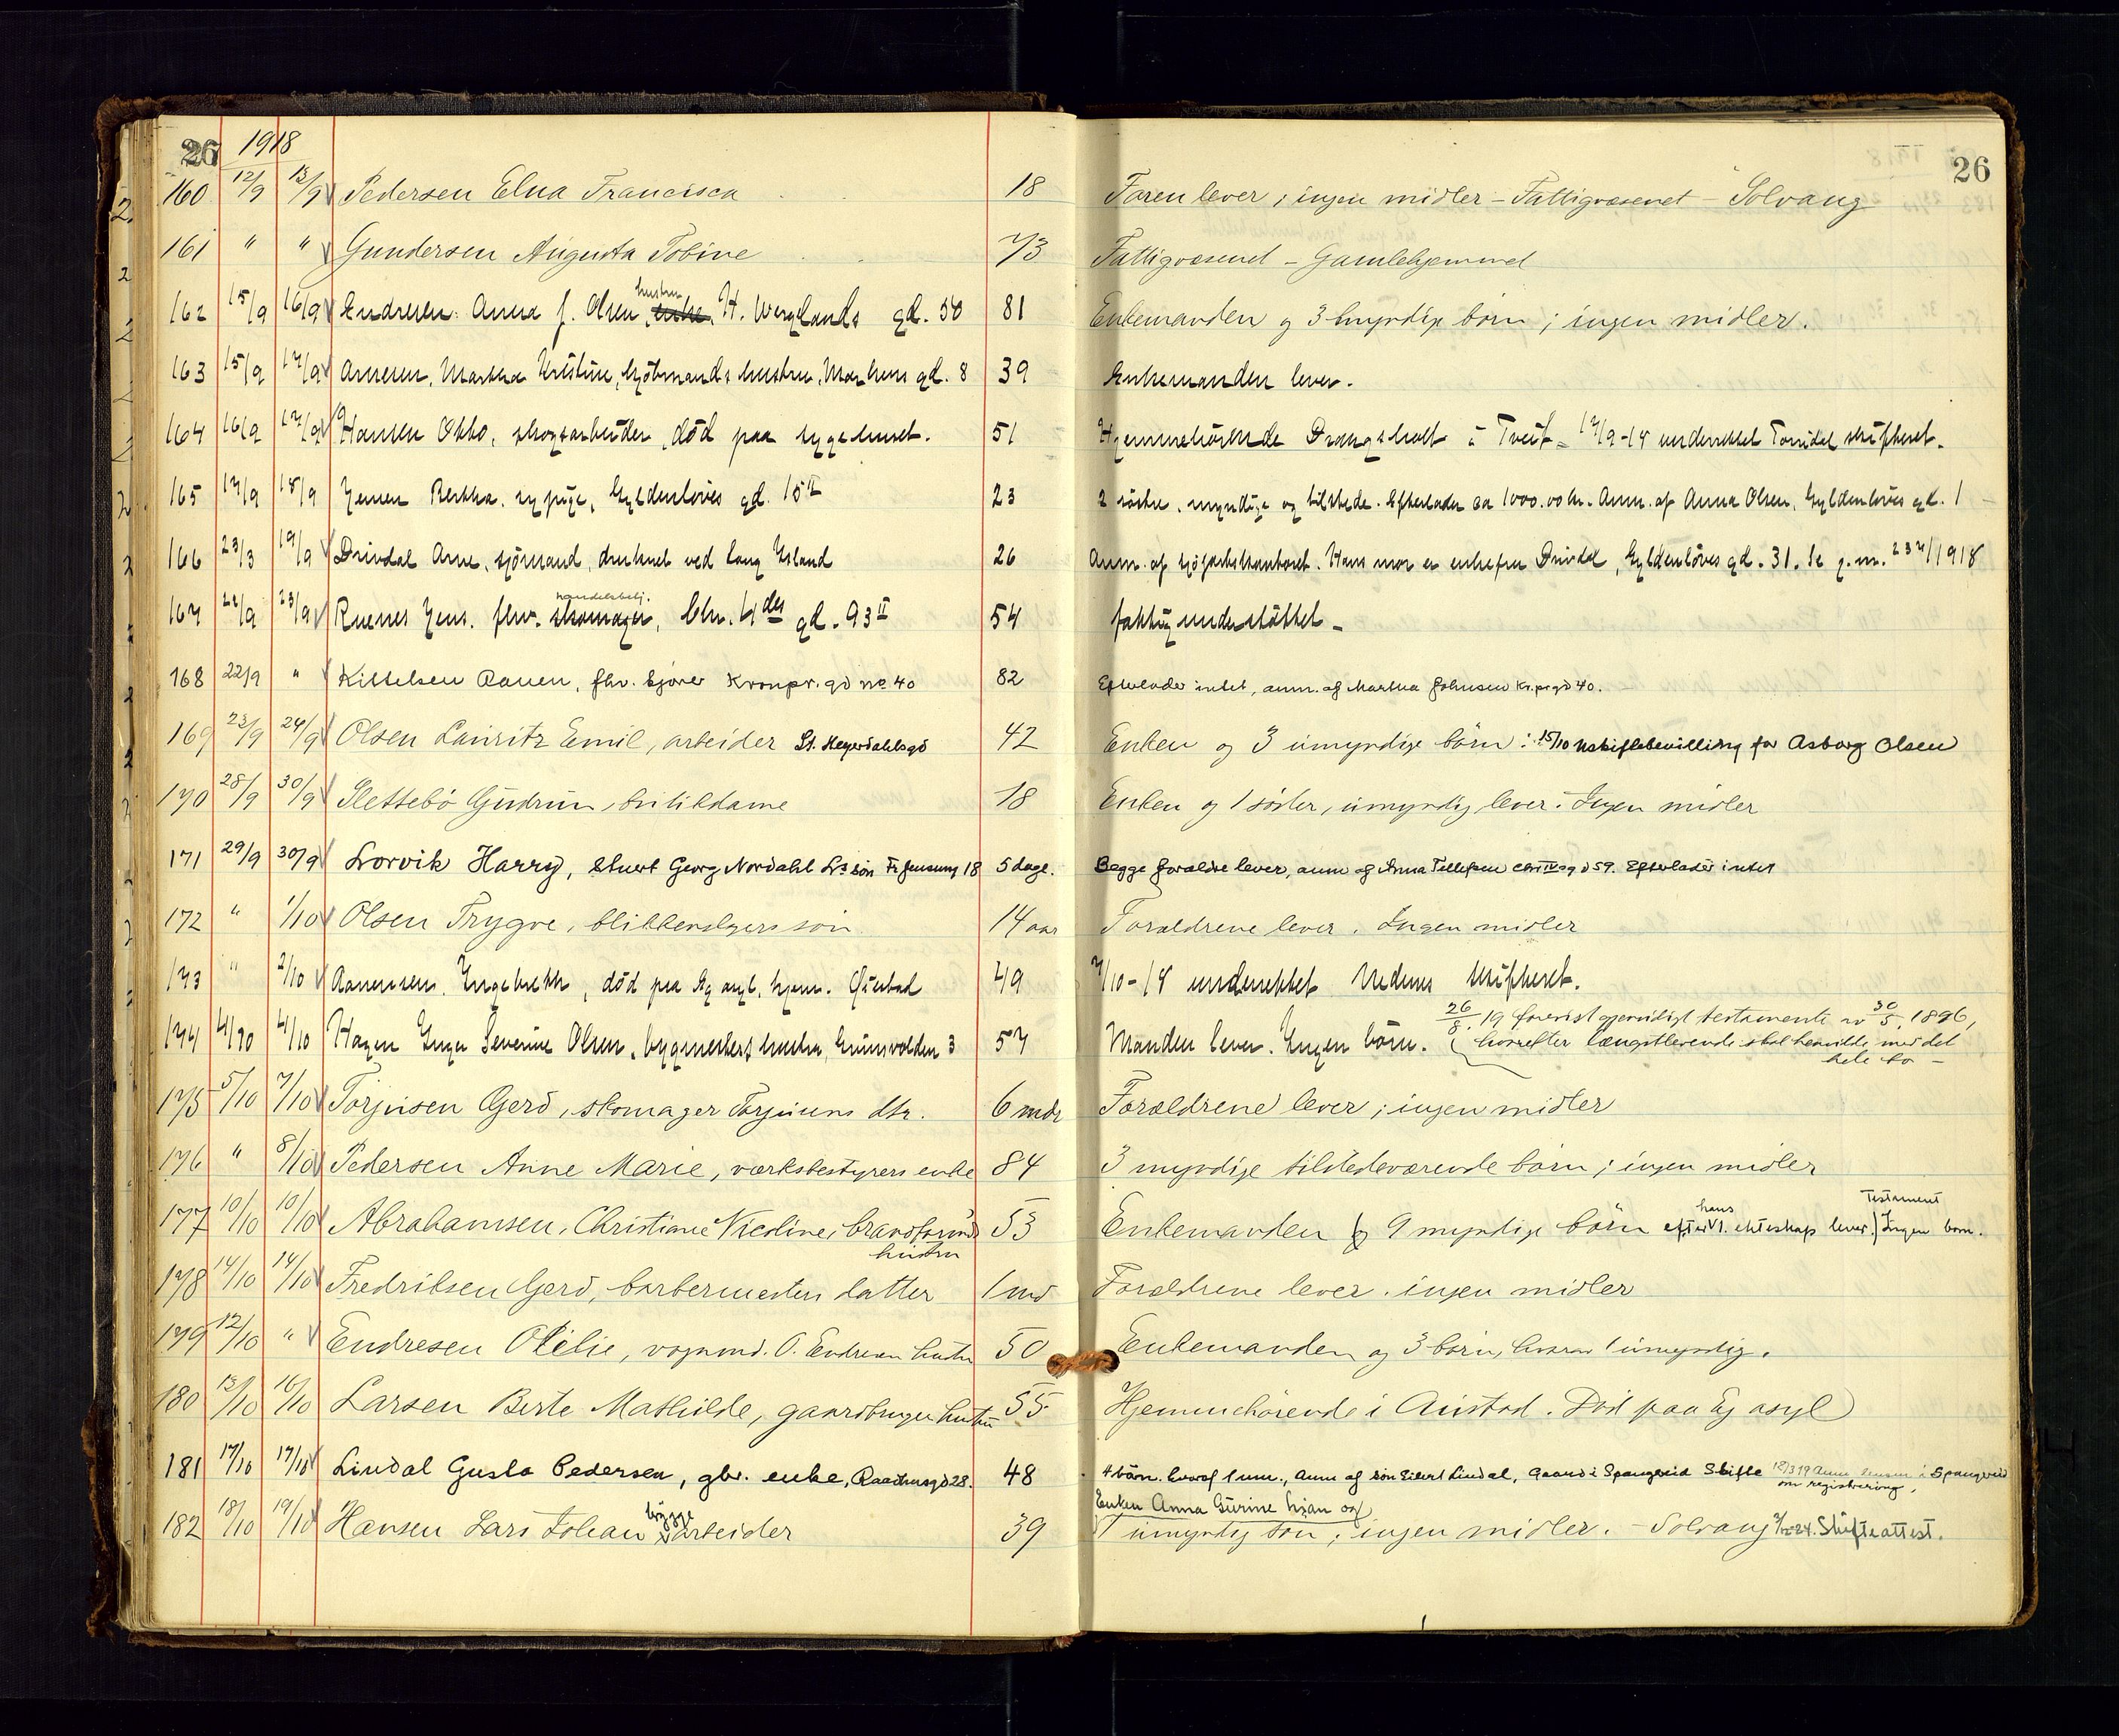 26 1918 26
160 12/9 13/9 Pedersen Elna Francisca 18 Faren lever; ingen midler - Fattigvæsenet - Solvang
161 " " Gundersen Augusta Tobine 73 Fattigvæsenet - Gamlehjemmet
hustru
162 15/9 16/9 Endresen Anna f. Olsen, enke, H. Wergelands gd. 50 81 Enkemanden og 3 myndige børn; ingen midler.
163 15/9 17/9 Arnesen, Martha Kristine, sjömands hustru, Markens gd. 8 39 Enkemanden lever.
164 16/9 17/9 Hansen Otto, skogsarbeider, död paa sygehuset. 51 Hjemmehörende Drangsholt i Tveit - 17/9-18 underrettet Torridal skifteret.
165 17/9 18/9 Jensen Bertha, sypige, Gyldenløves gd. 15 II 23 2 søstre, myndige og tilstede. Efterlader ca 1000.00 kr. Anm. af Anna Olsen, Gyldenløves gd. 1
166 23/3 19/9 Drivdal Arne, sjömand, druknet ved Long Island 26 Anm. af sjöfartskontoret. Hans mor er enkefru Drivdal, Gyldenløves gd. 31. Se g.m. 232/1918
handelsbetj.
167 22/9 23/9 Ruenes Jens. fhv. skomager, Chr. 4des gd. 93 II 54 fattigunderstöttet -
168 22/9 " Kittelsen Aanen, fhv. kjører Kronpr. gd no 40 82 Efterlader intet, anm. af Martha Johnsen Kr.pr.gd 40.
169 23/9 24/9 Olsen Lauritz Emil, arbeider St. Heyerdahlsgd 42 Enken og 3 umyndige børn: 15/10 uskiftebevilling for Asborg Olsen
170 28/9 30/9 Slettebö Gudrun, butikdame 18 Enken og 1 söster, umyndig lever. Ingen midler
171 29/9 30/9 Lorvik Harry, Stuert Georg Nordahl L's søn Fr Jensensg 18 5 dage. Begge forældre lever, anm af Anna Tellefsen Chr IV sg d 59. Efterlader intet
172 " 1/10 Olsen Trygve, blikkenslagers søn 14 aar Forældrene lever. Ingen midler
173 " 2/10 Aanensen, Ingebreth, död paa Eg asyl, hjem. Øiestad 49 2/10-18 underrettet Nedenes skifteret.
26/8. 19 forevist gjensidigt testamente av 30/5. 1896,
174 4/10 4/10 Hagen Inger Severine Olsen, bygmesters hustru, Grimsvolden 3 57 Manden lever. Ingen börn. hvorefter længstlevende skal henvilde med det
hele bo -
175 5/10 7/10 Torjusen Gerd, skomager Torjusens dtr. 6 mdr Forældrene lever; ingen midler
176 " 8/10 Pedersen Anne Marie, værksbestyrers enke 84 3 myndige tilstedeværende børn; ingen midler
hans Testament
177 10/10 10/10 Abrahamsen, Christiane Nicoline, brandform. 53 Enkemanden og 9 myndige børn efter 1. ekteskap lever. Ingen born.
hustru
178 14/10 14/10 Fredriksen Gerd, barbermesters datter 1 md Forældrene lever. ingen midler
179 12/10 " Endresen Otelie, vognmd. O. Endresens hustru 50 Enkemanden og 3 børn, hvorav 1 umyndig.
180 13/10 16/10 Larsen Berte Mathilde, gaardbruger hustru 55 Hjemmehørende i Austad. Død paa Eg asyl
181 17/10 17/10 Lindal Gusta Pedersen, gbr. enke, Raadhusgd 28. 48 4 børn. hvoraf 1 um., Anm af søn Eilert Lindal, Gaard i Spangereid Skifte 12/3 19 i Spangereid
om registrering,
bygge Enken Anna Gurine hjan og
182 18/10 19/10 Hansen Lars Johan arbeider 39 1 umyndig søn; ingen midler. - Solvang 24. Skifteattest.